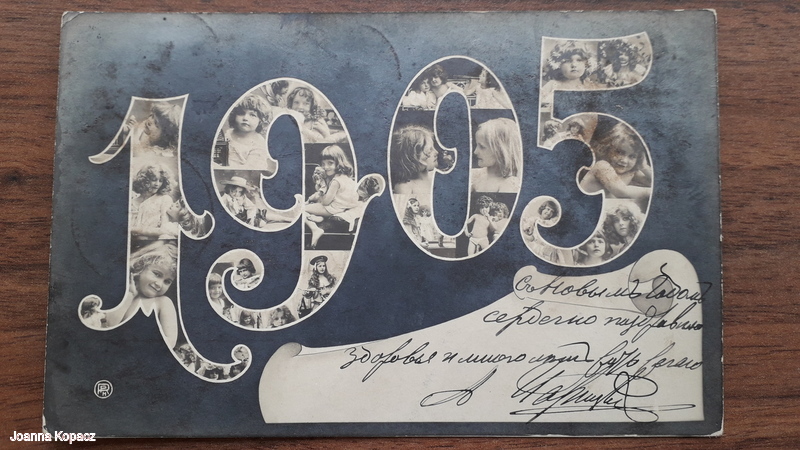 1905
Съ Новымъ Годомъ
сердечно поздравляю
Здоровья и много
А.
Joanna Kopacz